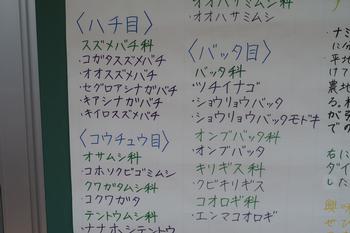 〈ハチ目〉
スズメバチ科
・コガタスズメバチ
・オオスズメバチ
・セグロアシナガバチ
・キアシナガバチ
・キイロスズメバチ
〈コウチュウ目〉
オサムシ科
・コホソクビゴミムシ
クワガタムシ科
・コクワガタ
テントウムシ科
・ナナホシテントウ
・オオハサミムシ
〈バッタ目〉
バッタ科
・ツチイナゴ
・ショウリョウバッタ
・ショウリョウバッタモドキ
オンブバッタ科
・オンブバッタ
キリギリス科
・クビキリギス
コオロギ科
・エンマコオロギ
ナミ
に分
・平地
農地
る。
が
での
右に
ダイ
した